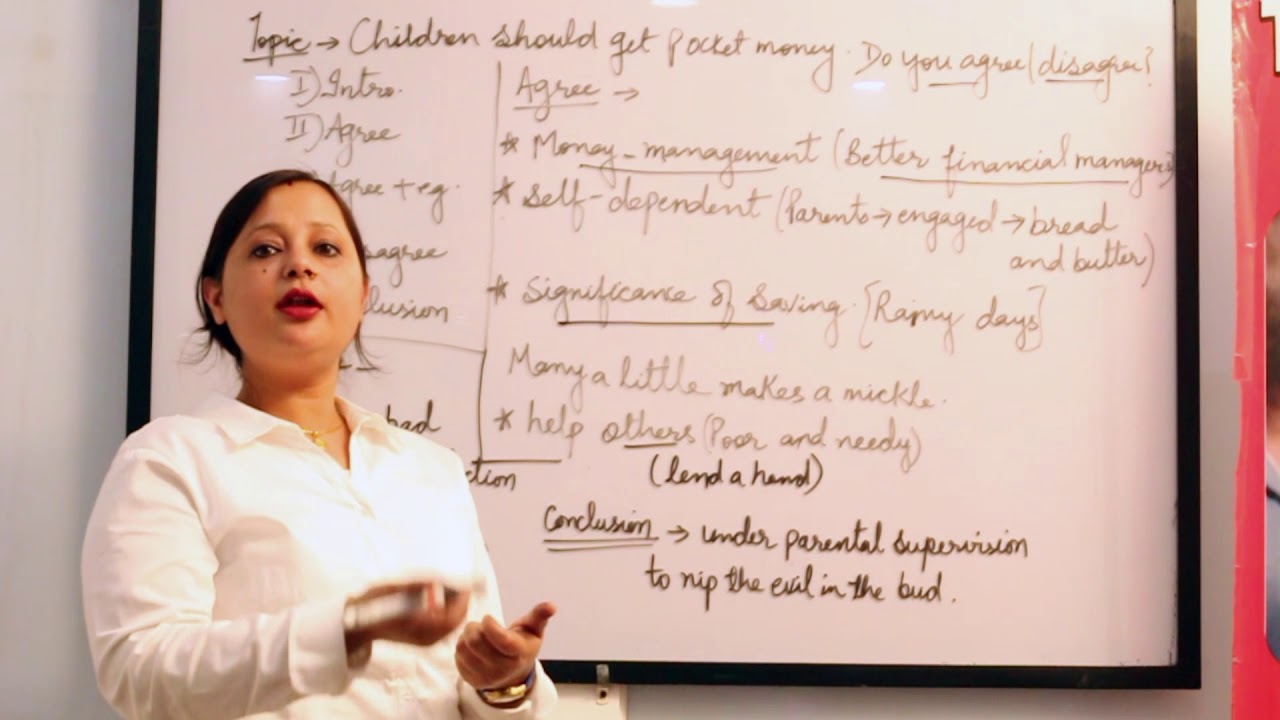 Topic → Children should get pocket money. Do you agree/disagree?
I) Intro.
II) Agree
Agree + eg.
sagree
lusion
bad
ction
Agree →
* Money-management (Better financial managers)
* Self-dependent (Parents → engaged → bread
and butter)
* Significance of Saving. [Rainy days]
Many a little makes a mickle.
* help others (Poor and needy)
(lend a hand)
Conclusion → under parental supervision
to nip the evil in the bud.